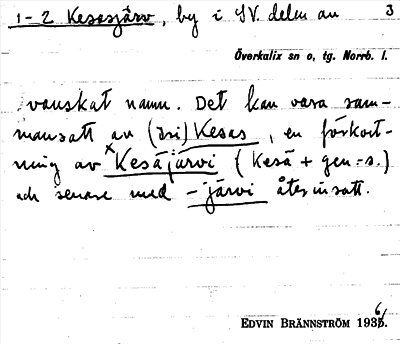 1-2 Kesasjärv, by i SV. delen av 3
Överkalix sn o, tg. Norrb. l.
vanskat namn. Det kan vara sam-
mansatt av (dri) Kesas, en förkort-
ning av *Kesäjärvi (Kesä + gen.-s.)
och senare med -järvi återinsatt.
EDVIN BRÄNNSTRÖM 1936.